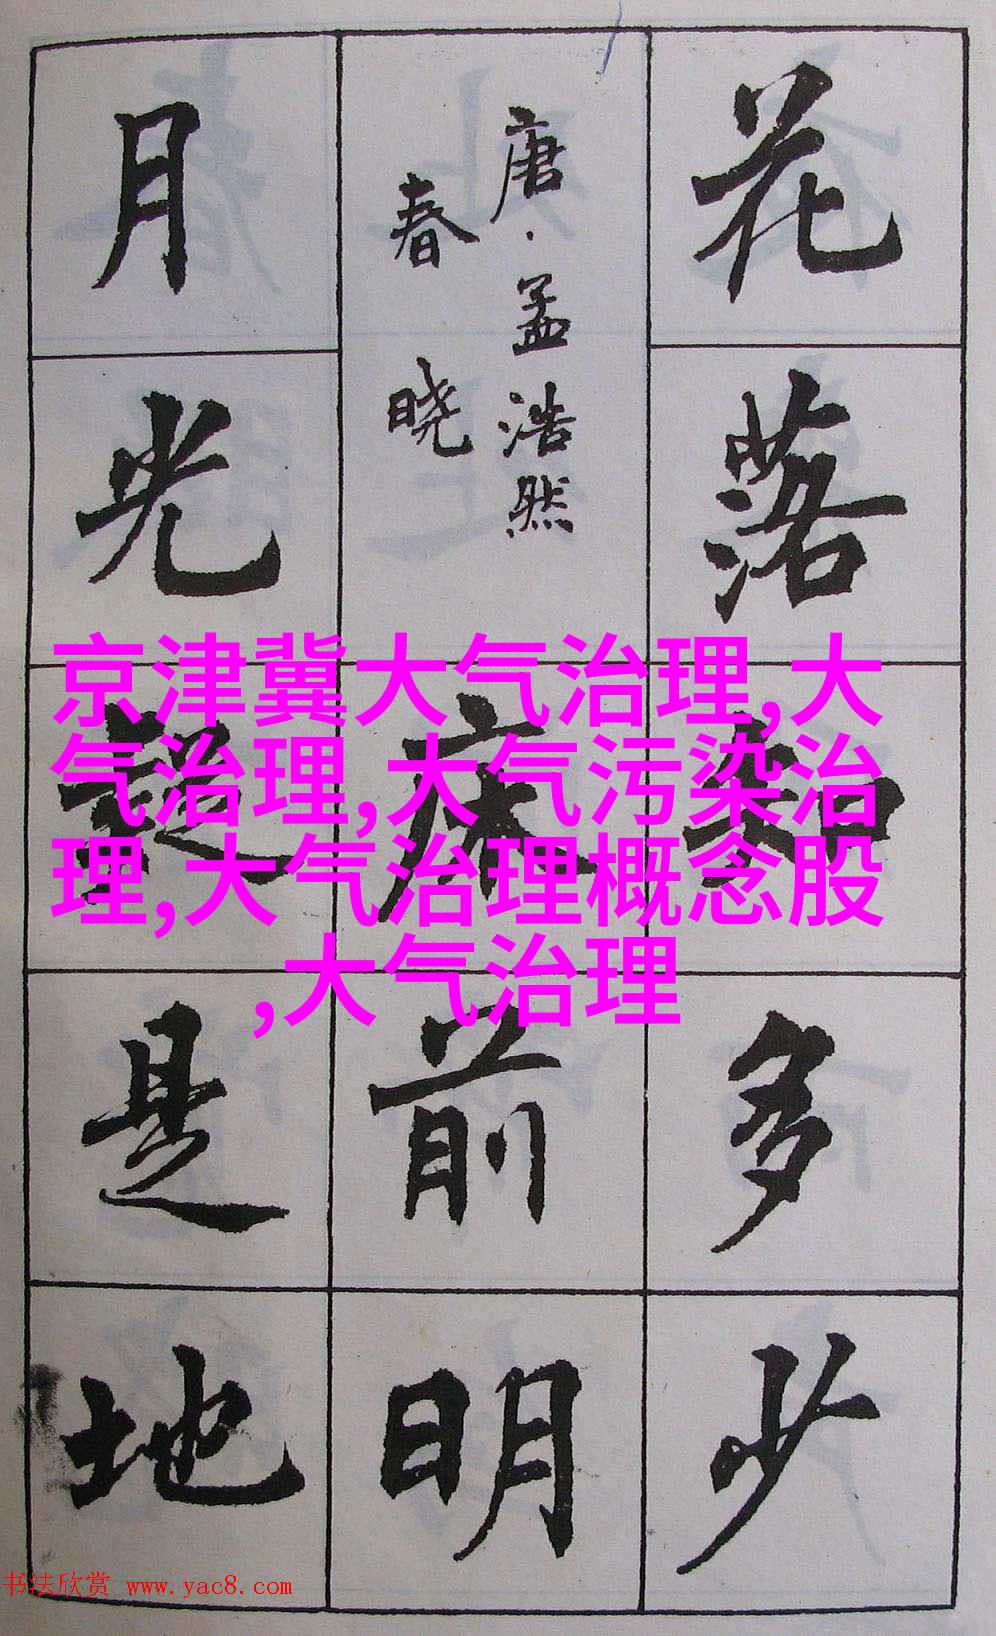 花落知多少
唐·孟浩然
春晓
床前明
月光疑是地
京津冀大气治理,大
气治理,大气污染治
理,大气治理概念股
,大气治理
书法欣赏 www.yac8.com